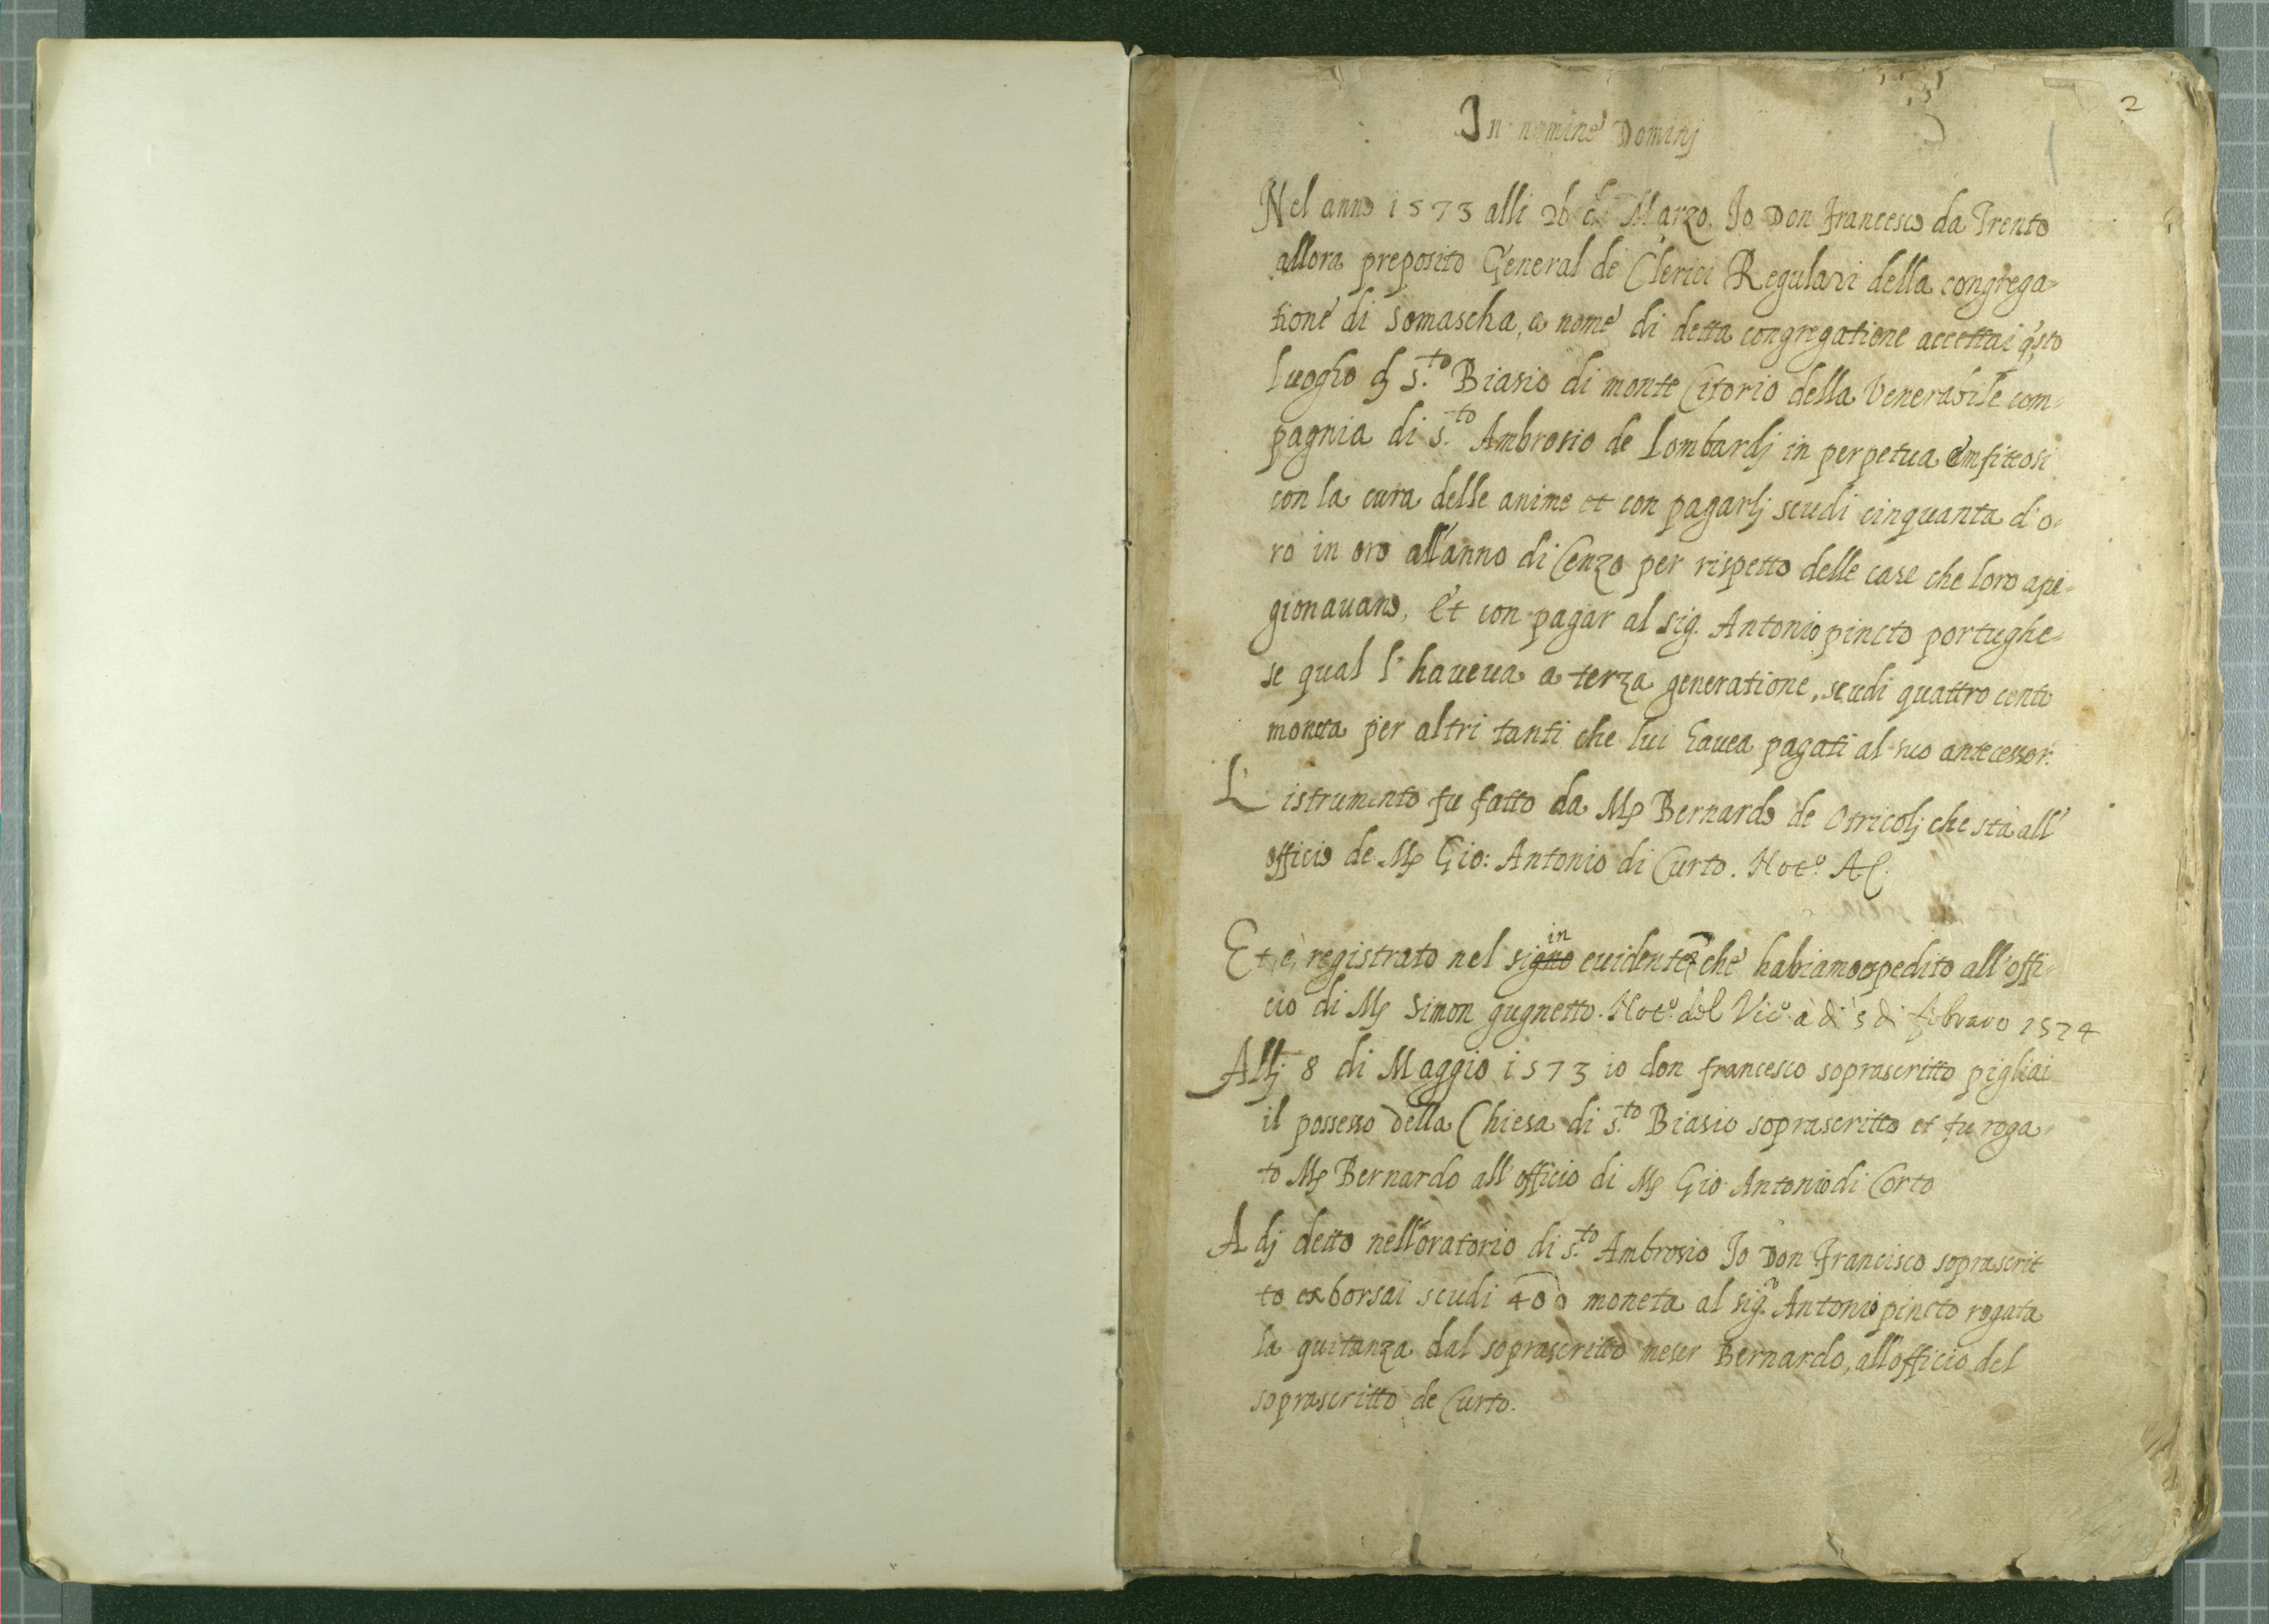 2
In nomine Dominj
Nel anno 1573 alli 26 di Marzo. Io Don Francesco da Trento
allora preposito General de Clerici Regulari della congrega=
tione di Somascha, a nome di detta congregatione accettai q.sto
luogho di S.to Biasio di monte Citorio della Venerabile com=
pagnia di S.to Ambrosio de Lombardj in perpetua emfiteosi
con la cura delle anime et con pagarlj scudi cinquanta d'o=
ro in oro all'anno di Cenzo per rispetto delle case che loro api=
gionavano, Et con pagar al sig. Antonio pincto portughe=
se qual l'haveva a terza generatione, scudi quattro cento
moneta per altri tanti che lui havea pagati al suo antecessor.
L'istrumento fu fatto da Mp Bernardo de Otricolj che sta all'
officio de Mp Gio: Antonio di Curto. Not.o A.C.
Et è registrato nel signo in evidente che habiamo expedito all'offi=
cio di Mp Simon gugnetto. Not.o del Vic.o à dì 5 di febraro 1574
Allj 8 di Maggio 1573 io don francesco soprascritto pigliai
il possesso della Chiesa di S.to Biasio soprascritto et fu roga=
to Mp Bernardo all'officio di Mp Gio Antonio di Corto
A dj detto nell'oratorio di S.to Ambrosio Io Don Francisco soprascrit
to exborsai scudi 400 moneta al sig.r Antonio pincto rogata
la quitanza dal soprascritto meser Bernardo, all'officio del
soprascritto de Curto.